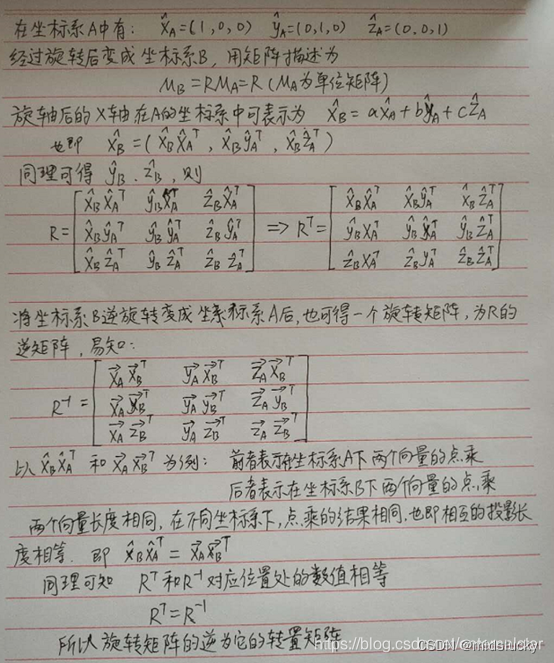 在坐标系A中有: x̂_A=(1,0,0) ŷ_A=(0,1,0) ẑ_A=(0.0.1)
经过旋转后变成坐标系B,用矩阵描述为
M_B=RM_A=R (M_A为单位矩阵)
旋轴后的X轴在A的坐标系中可表示为 x̂_B=ax̂_A+bŷ_A+cẑ_A
也即 x̂_B=(x̂_Bx̂_A^T, x̂_Bŷ_A^T, x̂_Bẑ_A^T)
同理可得 ŷ_B、ẑ_B,则
R=[x̂_Bx̂_A^T ŷ_Bx̂_A^T ẑ_Bx̂_A^T => R^T=[x̂_Bx̂_A^T x̂_Bŷ_A^T x̂_Bẑ_A^T
x̂_Bŷ_A^T ŷ_Bŷ_A^T ẑ_Bŷ_A^T ŷ_Bx̂_A^T ŷ_Bŷ_A^T ŷ_Bẑ_A^T
x̂_Bẑ_A^T ŷ_Bẑ_A^T ẑ_Bẑ_A^T] ẑ_Bx̂_A^T ẑ_Bŷ_A^T ẑ_Bẑ_A^T]
将坐标系B逆旋转变成坐标系A后,也可得一个旋转矩阵,为R的
逆矩阵,易知:
R^-1=[x⃗_Ax⃗_B^T y⃗_Ax⃗_B^T z⃗_Ax⃗_B^T
x⃗_Ay⃗_B^T y⃗_Ay⃗_B^T z⃗_Ay⃗_B^T
x⃗_Az⃗_B^T y⃗_Az⃗_B^T z⃗_Az⃗_B^T]
以 x̂_Bx̂_A^T 和 x⃗_Ax⃗_B^T 为例: 前者表示在坐标系A下两个向量的点乘
后者表示在坐标系B下两个向量的点乘
两个向量长度相同,在不同坐标系下,点乘的结果相同.也即相互的投影长
度相等. 即 x̂_Bx̂_A^T=x⃗_Ax⃗_B^T
同理可知 R^T和R^-1对应位置处的数值相等
R^T=R^-1
所以旋转矩阵的逆为它的转置矩阵
CSDN @mindslucky